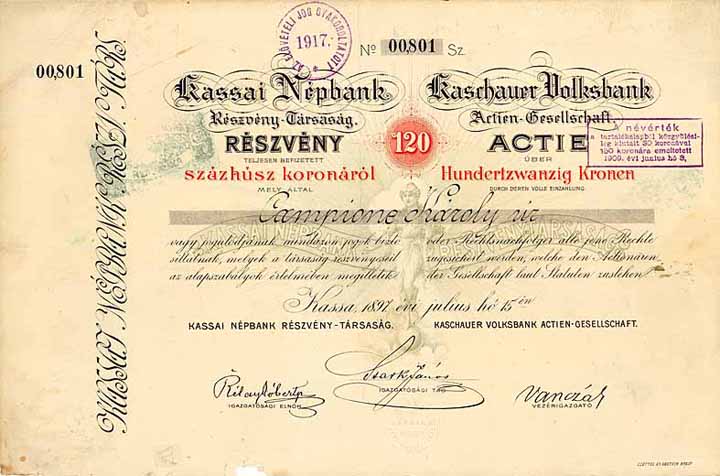 AZ ELŐVÉTELI JOG GYAKOROLTATOTT
1917.
No 00,801 Sz.
00,801
KASSAI NÉPBANK RÉSZV. TÁRS.
Kassai Népbank
Részvény-Társaság.
RÉSZVÉNY
TELJESEN BEFIZETETT
százhúsz koronáról
MELY ÁLTAL
120
Kaschauer Volksbank
Actien-Gesellschaft.
ACTIE
ÜBER
Hundertzwanzig Kronen
DURCH DEREN VOLLE EINZAHLUNG
A névérték
a tartalékalapból közgyűlési-
leg kiutalt 30 koronával
150 koronára emeltetett
1909. évi június hó 3,
Campione Károly úr
vagy jogutódjának mindazon jogok bizto
sittatnak, melyek a társaság részvényeseit
az alapszabályok értelmében megilletik
oder Rechtsnachfolger alle jene Rechte
zugesichert werden, welche den Actionären
der Gesellschaft laut Statuten zustehen
Kassa, 1897. évi július hó 15 én
KASSAI NÉPBANK RÉSZVÉNY-TÁRSASÁG.
KASCHAUER VOLKSBANK ACTIEN-GESELLSCHAFT.
IGAZGATÓSÁGI ELNÖK
IGAZGATÓSÁGI TAG
VEZÉRIGAZGATÓ